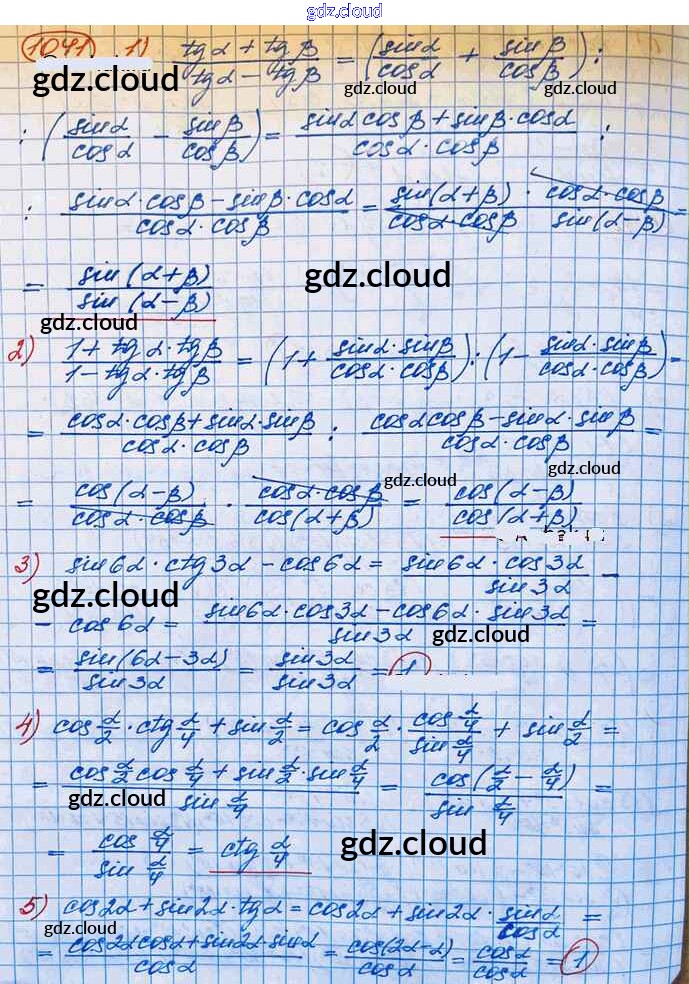 gdz.cloud
1041 1) (tgα + tgβ)/(tgα − tgβ) = (sinα/cosα + sinβ/cosβ) :
gdz.cloud gdz.cloud gdz.cloud
: (sinα/cosα − sinβ/cosβ) = (sinα cosβ + sinβ·cosα)/(cosα·cosβ) :
: (sinα·cosβ − sinβ·cosα)/(cosα·cosβ) = sin(α+β)/(cosα·cosβ) · (cosα·cosβ)/sin(α−β) =
= sin(α+β)/sin(α−β)
gdz.cloud
gdz.cloud
2) (1 + tgα·tgβ)/(1 − tgα·tgβ) = (1 + (sinα·sinβ)/(cosα·cosβ)) : (1 − (sinα·sinβ)/(cosα·cosβ)) =
= (cosα·cosβ + sinα·sinβ)/(cosα·cosβ) : (cosα cosβ − sinα·sinβ)/(cosα·cosβ) =
gdz.cloud
= cos(α−β)/(cosα·cosβ) · (cosα·cosβ)/cos(α+β) = cos(α−β)/cos(α+β)
3) sin6α·ctg3α − cos6α = (sin6α·cos3α)/sin3α −
gdz.cloud
− cos6α = (sin6α·cos3α − cos6α·sin3α)/sin3α =
gdz.cloud
= sin(6α−3α)/sin3α = sin3α/sin3α = 1
4) cos α/2 · ctg α/4 + sin α/2 = cos α/2 · (cos α/4)/(sin α/4) + sin α/2 =
= (cos α/2 cos α/4 + sin α/2 · sin α/4)/(sin α/4) = cos(α/2 − α/4)/(sin α/4) =
gdz.cloud gdz.cloud
= (cos α/4)/(sin α/4) = ctg α/4
gdz.cloud
5) cos2α + sin2α·tgα = cos2α + sin2α · sinα/cosα =
= (cos2α cosα + sin2α·sinα)/cosα = cos(2α−α)/cosα = cosα/cosα = 1
gdz.cloud
gdz.cloud